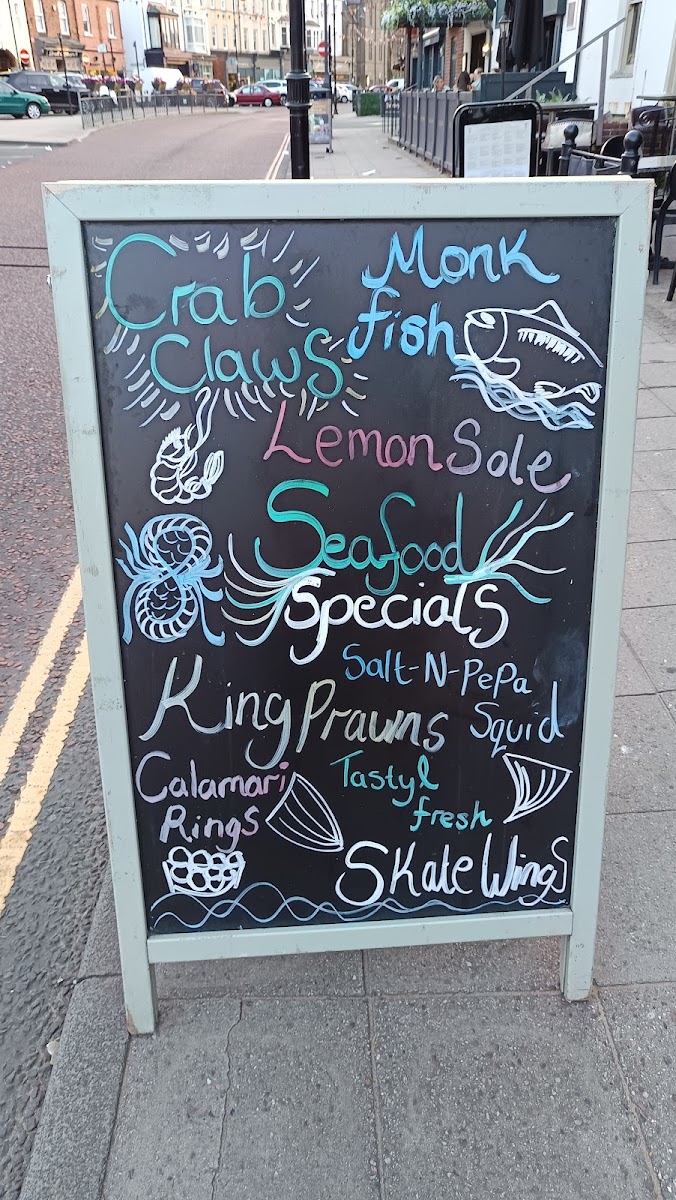 Crab
Claws
Monk
fish
Lemon Sole
Seafood
Specials
Salt-N-PePa
Squid
King Prawns
Calamari
Rings
Tasty &
fresh
Skate Wings